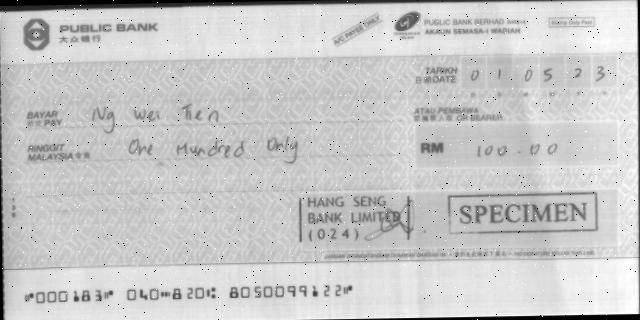 PUBLIC BANK
大众银行
A/C PAYEE ONLY
PUBLIC BANK BERHAD
AKAUN SEMASA-I WADIAH
Stamp Duty Paid
TARIKH
日期 DATE
0 1 0 5 2 3
BAYAR
PAY
Ng Wei Tien
ATAU PEMBAWA
OR BEARER
RINGGIT
MALAYSIA
One Hundred Only
RM
100.00
HANG SENG
BANK LIMITED
(024)
SPECIMEN
⑈000183⑈ 040⑉820⑆ 8050099122⑈